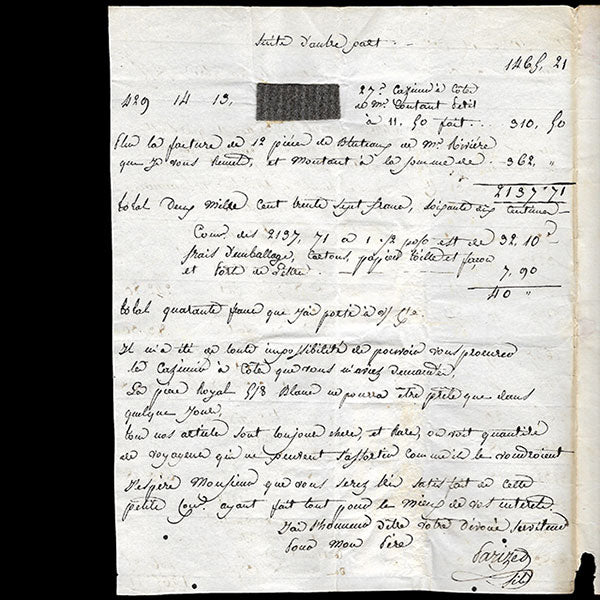 Suite d'autre part
1465, 21
27. Cazimir à Côte
429 14 13, de Mr Coutant Petit
à 11. 50 fait... 310, 50
Plus la facture de 12 pièces de Bluteaux de Mr Rivière
que Je vous remets, et montant à la somme de.. 362, "
2137 71
total deux mille Cent trente Sept francs, soixante dix Centimes
Com. des 2137, 71 à 1 1/2 p o/o est de 32, 10
frais d'emballage, Cartons, papier toille et façon
et Port de Lettre. 7, 90
40 "
total quarante francs que J'ai porté à
Il m'a été de toute impossibilité de pouvoir vous procurer
le Cazimir à Côte que vous m'aviez demander
La pièce Royal 5/8 Blanc ne pourra être prête que dans
quelque Jours,
tous nos article sont toujours chers, et Rare, on voit quantité
de voyageurs qui ne peuvent s'assortir comme ils le voudroient
J'espère Monsieur que vous serez satisfait de Cette
petite Com. ayant fait tout pour le mieux de vos interets.
J'ai l'honneur d'être votre Dévoué Serviteur
Pour Mon Père
Parizet
fils